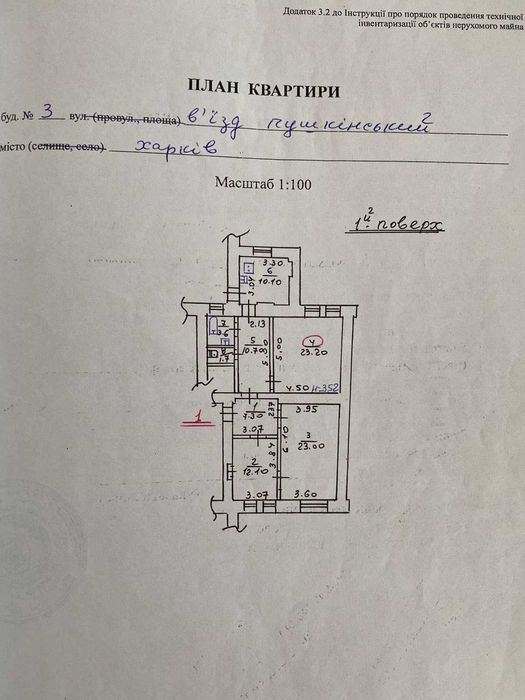 Додаток 3.2 до Інструкції про порядок проведення технічної
інвентаризації об'єктів нерухомого майна
ПЛАН КВАРТИРИ
буд. № 3 вул. (провул., площа) в'їзд Пушкінський 2
місто (селище, село) Харків
Масштаб 1:100
1й 2 поверх
3.30
6
10.10
2.13
7
3.6
5
10.70
5.00
4
23.20
8
1.7
4.50 h-3.52
1
1
7.30
2.37
3.95
3.07
6.10
3
23.00
2
12.10
3.84
3.07
3.60